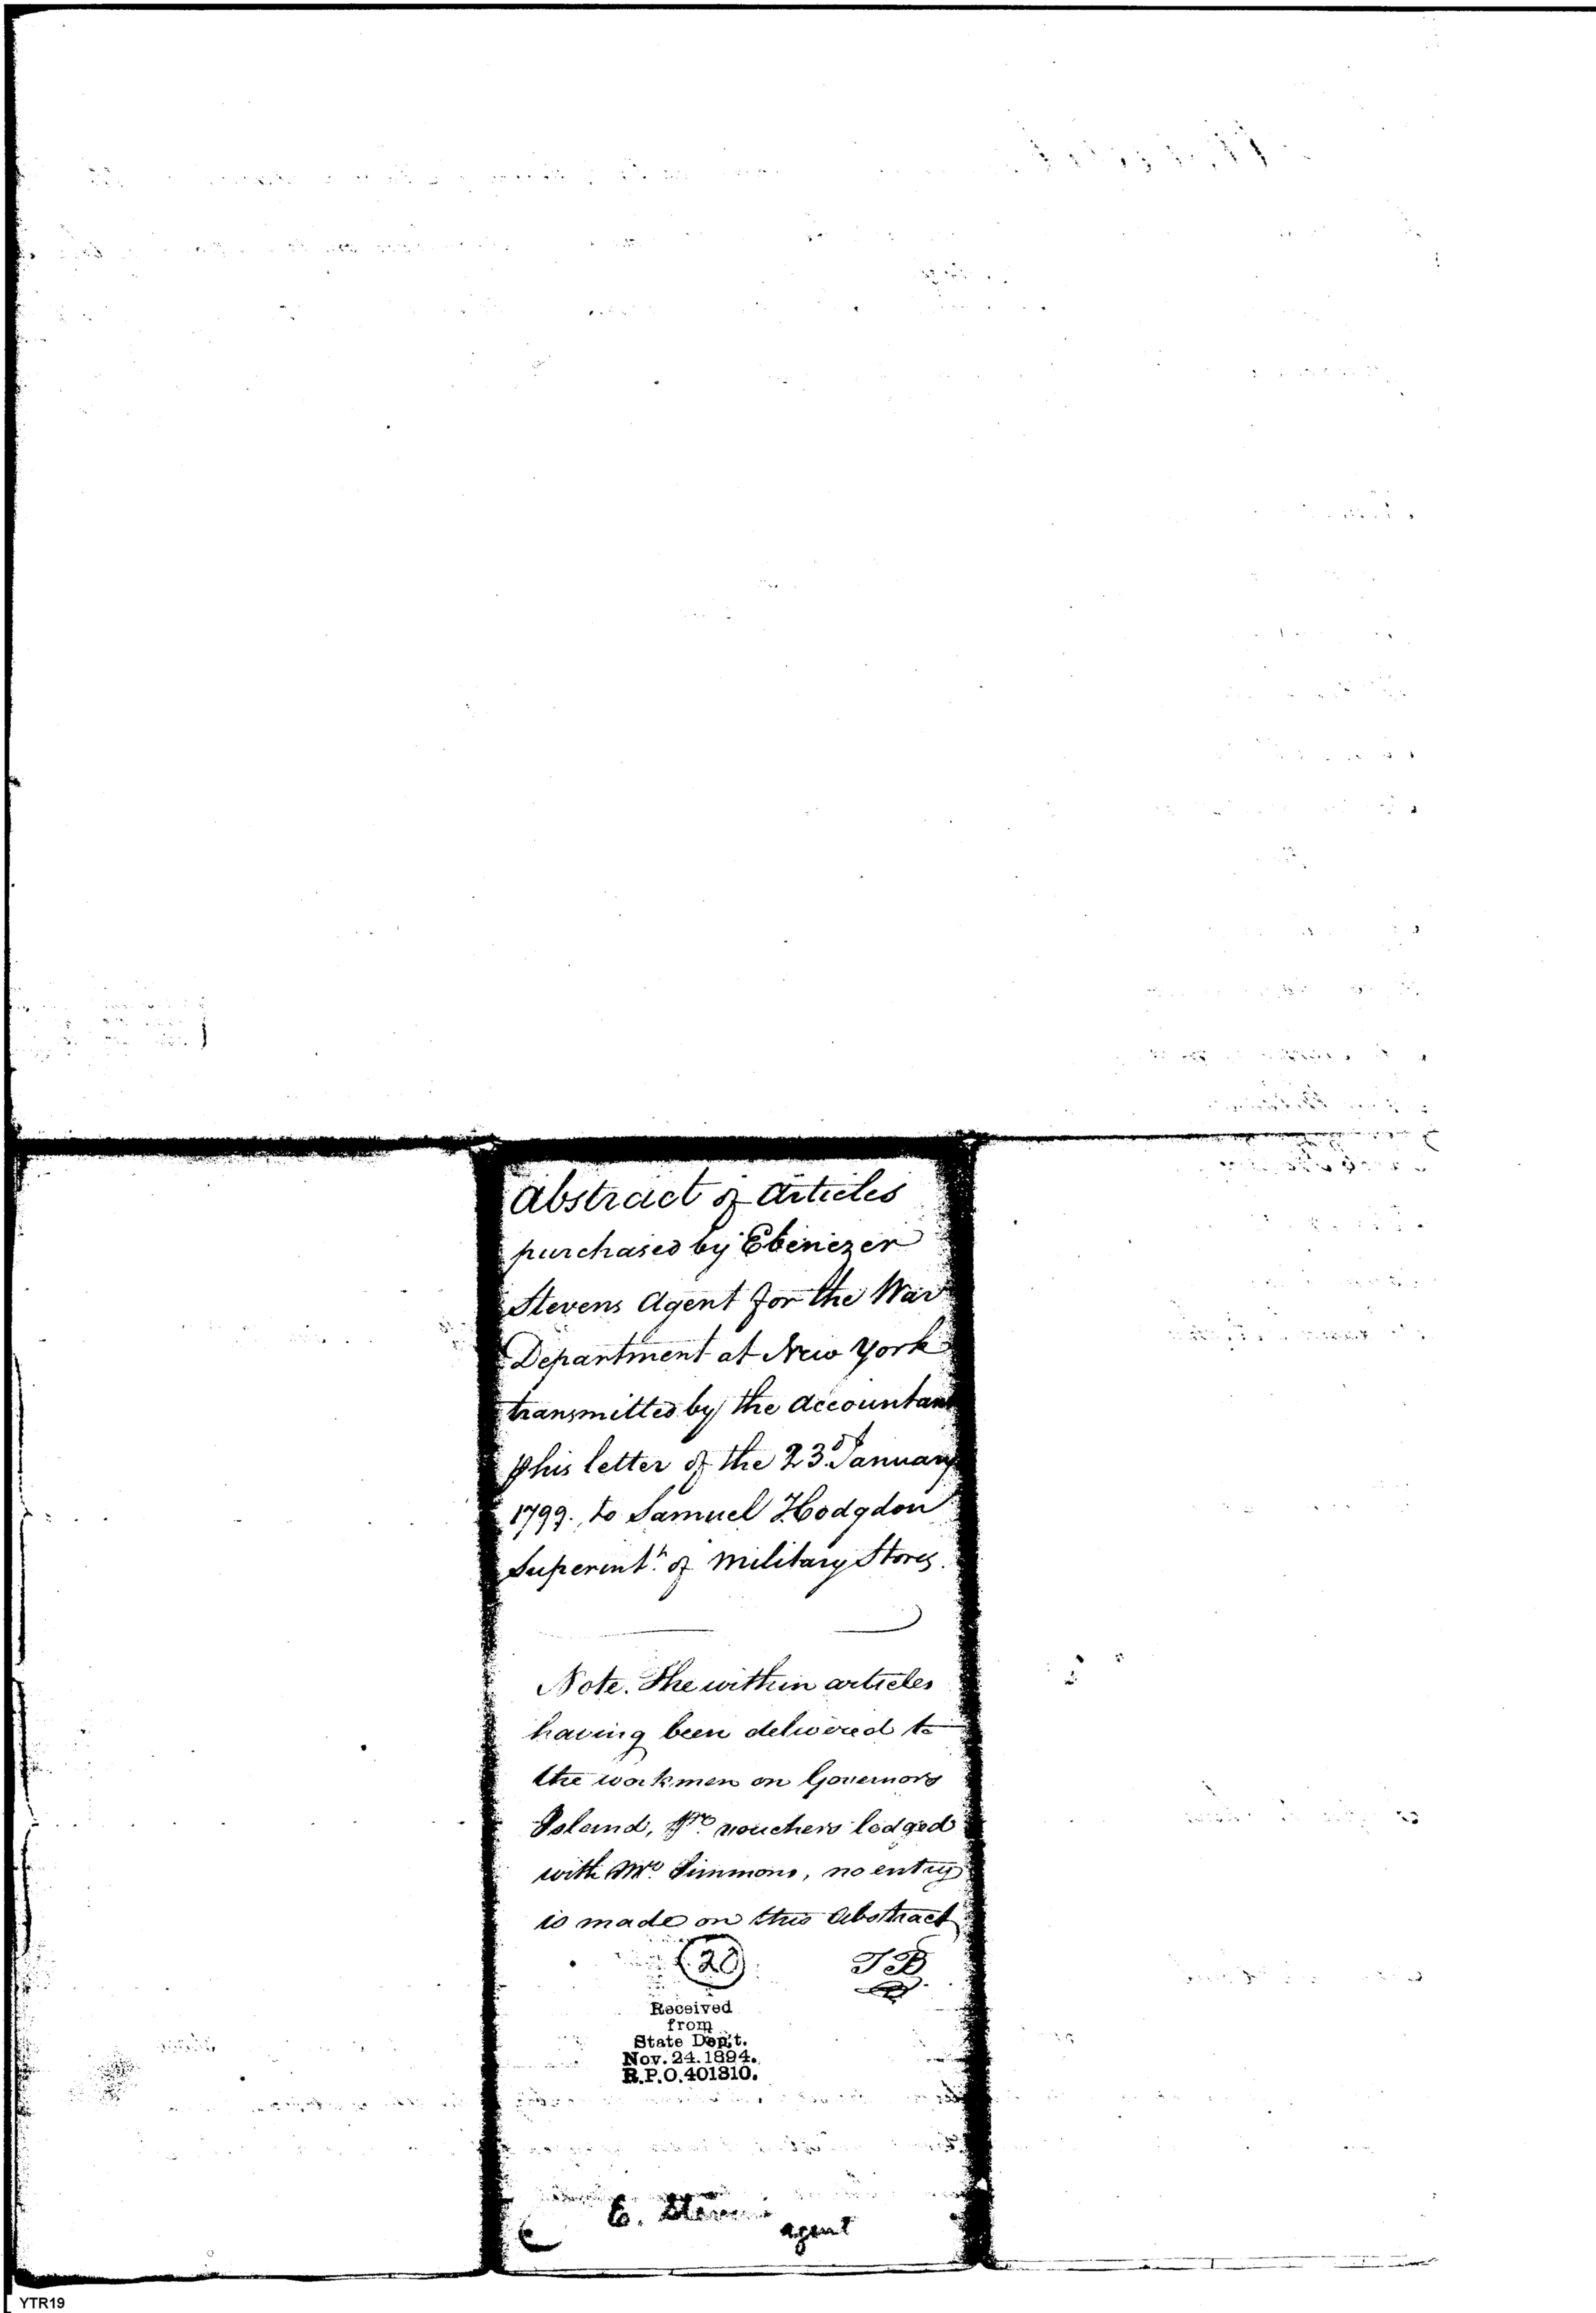 Abstract of Articles
purchased by Ebenezer
Stevens Agent for the War
Department at New York
transmitted by the Accountant
⅌ his letter of the 23d January
1799. to Samuel Hodgdon
Superintt. of Military Stores.
Note. The within articles
having been delivered to
the workmen on Governors
Island, pr. vouchers lodged
with Mr. Simmons, no entry
is made on this Abstract
(20)
Received
from
State Dep't.
Nov. 24. 1894.
R.P.O. 401310.
E. Stevens
agent
YTR19